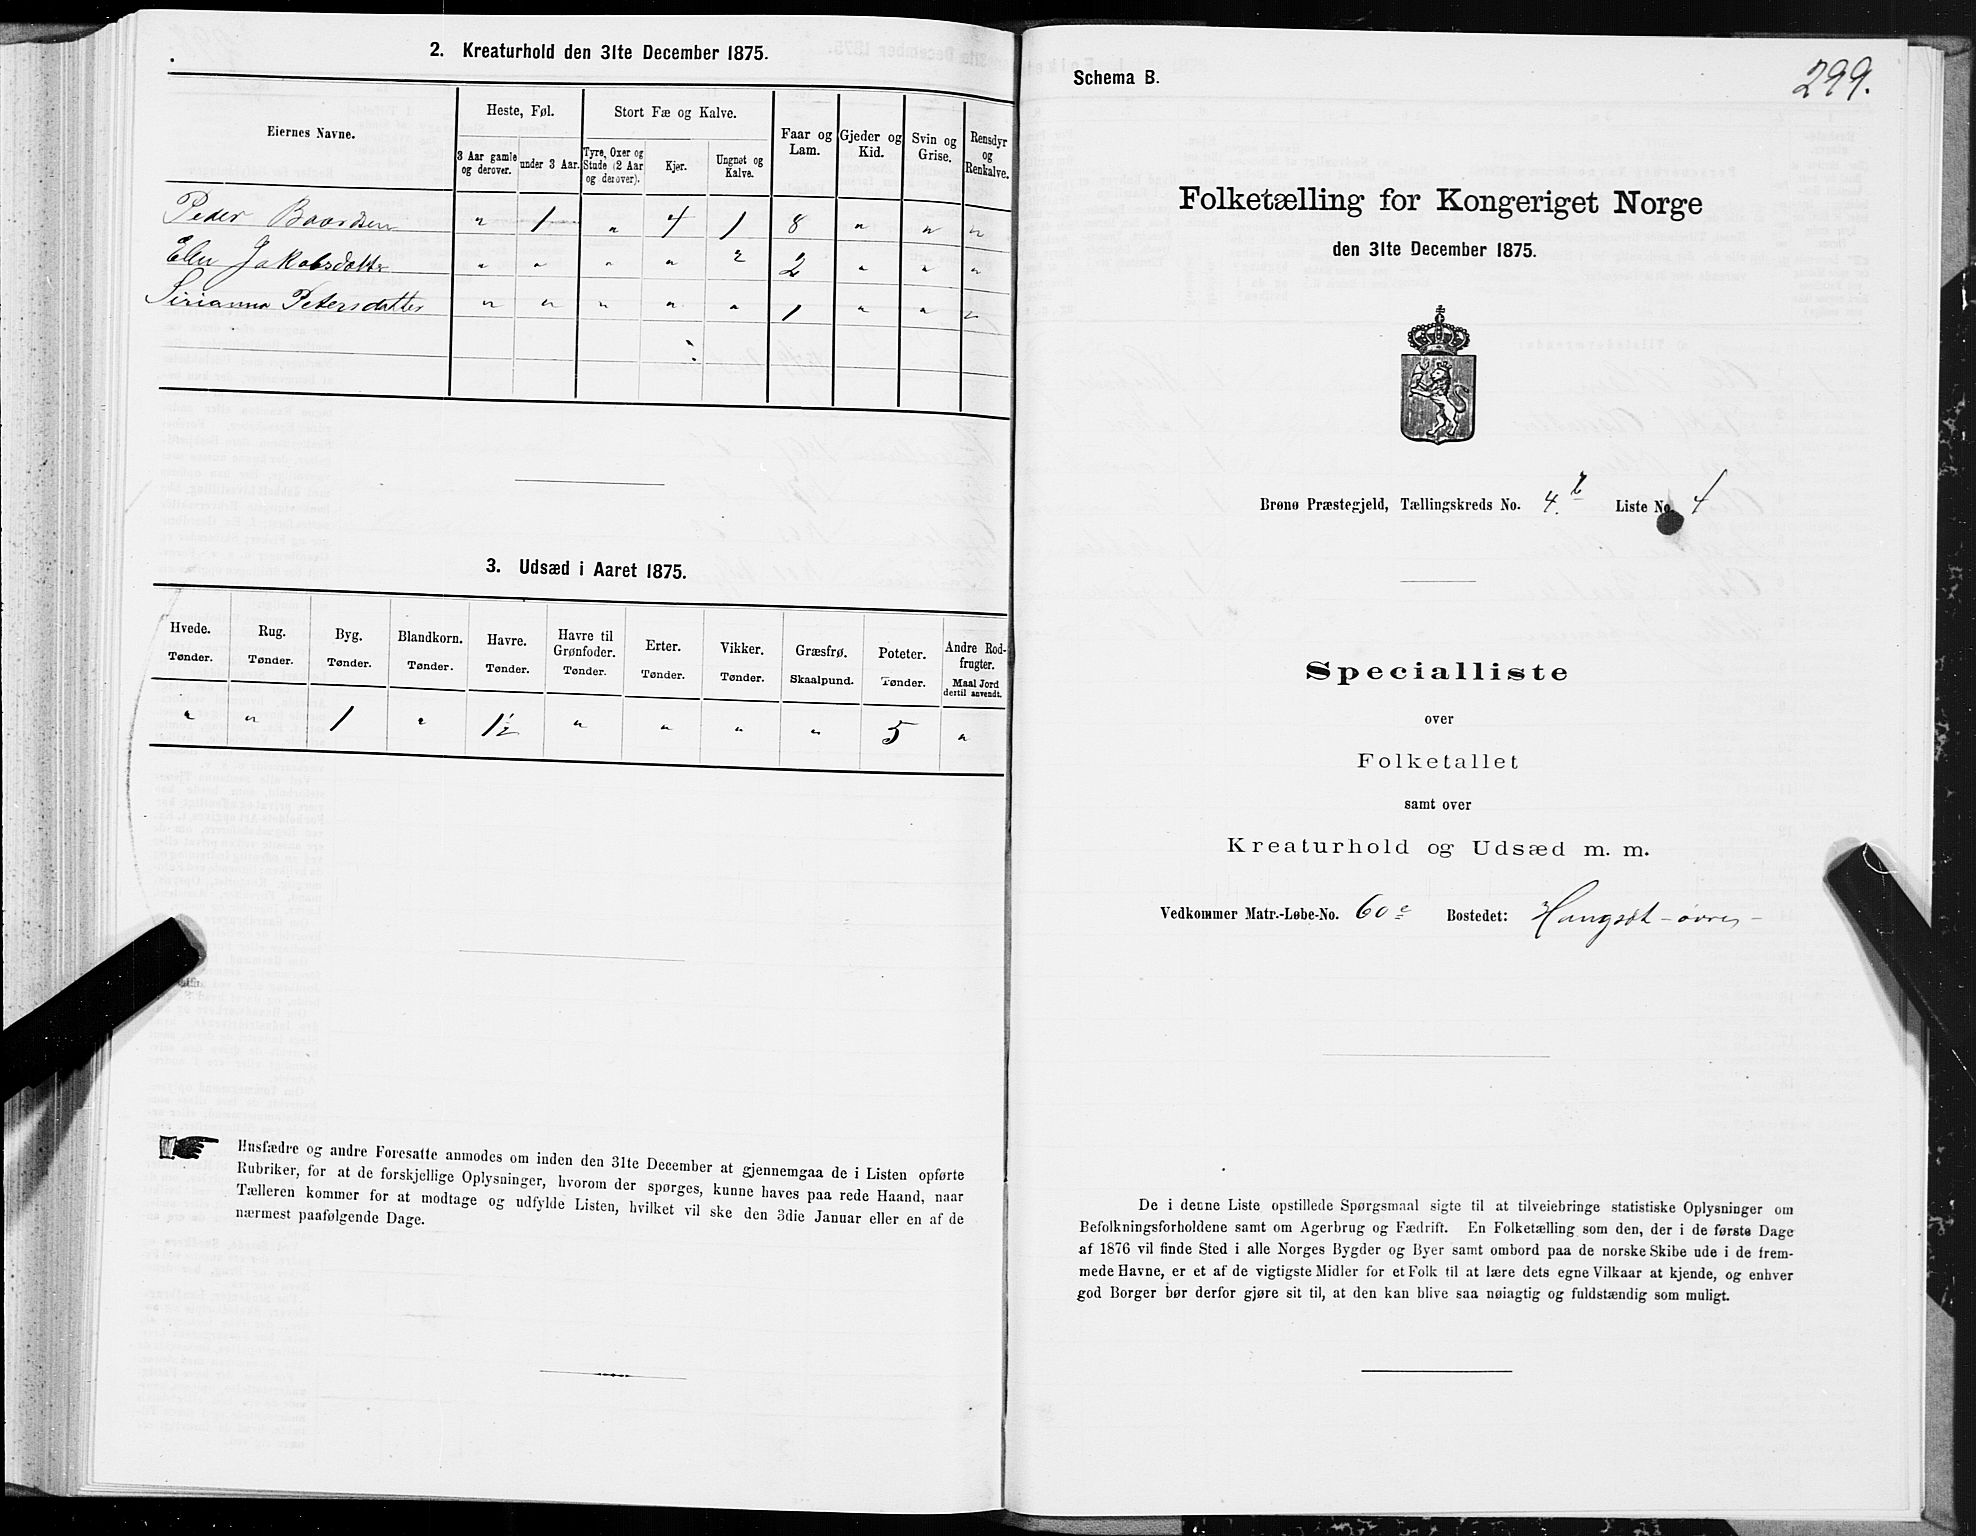 2. Kreaturhold den 31te December 1875.
Eiernes Navne.
Heste, Føl.
Stort Fæ og Kalve.
Faar og Lam.
Gjeder og Kid.
Svin og Grise.
Rensdyr og Renkalve.
3 Aar gamle og derover.
under 3 Aar.
Tyre, Oxer og Stude (2 Aar og derover).
Kjør.
Ungnøt og Kalve.
Peder Baardsen " 1 " 4 1 8 " " "
Elen Jakobsdatter " " " " 2 2 " " "
Sirianna Petersdatter " " " " " 1 " " "
3. Udsæd i Aaret 1875.
Hvede. Rug. Byg. Blandkorn. Havre. Havre til Grønfoder. Erter. Vikker. Græsfrø. Poteter. Andre Rodfrugter.
Tønder. Tønder. Tønder. Tønder. Tønder. Tønder. Tønder. Tønder. Skaalpund. Tønder. Maal Jord dertil anvendt.
" " 1 " 1½ " " " " 5 "
Husfædre og andre Foresatte anmodes om inden den 31te December at gjennemgaa de i Listen opførte
Rubriker, for at de forskjellige Oplysninger, hvorom der spørges, kunne haves paa rede Haand, naar
Tælleren kommer for at modtage og udfylde Listen, hvilket vil ske den 3die Januar eller en af de
nærmest paafølgende Dage.
299.
Schema B.
Folketælling for Kongeriget Norge
den 31te December 1875.
Brønø Præstegjeld, Tællingskreds No. 4.b Liste No. 4
Specialliste
over
Folketallet
samt over
Kreaturhold og Udsæd m. m.
Vedkommer Matr.-Løbe-No. 60 c Bostedet: Hongset - øvre -
De i denne Liste opstillede Spørgsmaal sigte til at tilveiebringe statistiske Oplysninger om
Befolkningsforholdene samt om Agerbrug og Fædrift. En Folketælling som den, der i de første Dage
af 1876 vil finde Sted i alle Norges Bygder og Byer samt ombord paa de norske Skibe ude i de frem-
mede Havne, er et af de vigtigste Midler for et Folk til at lære dets egne Vilkaar at kjende, og enhver
god Borger bør derfor gjøre sit til, at den kan blive saa nøiagtig og fuldstændig som muligt.